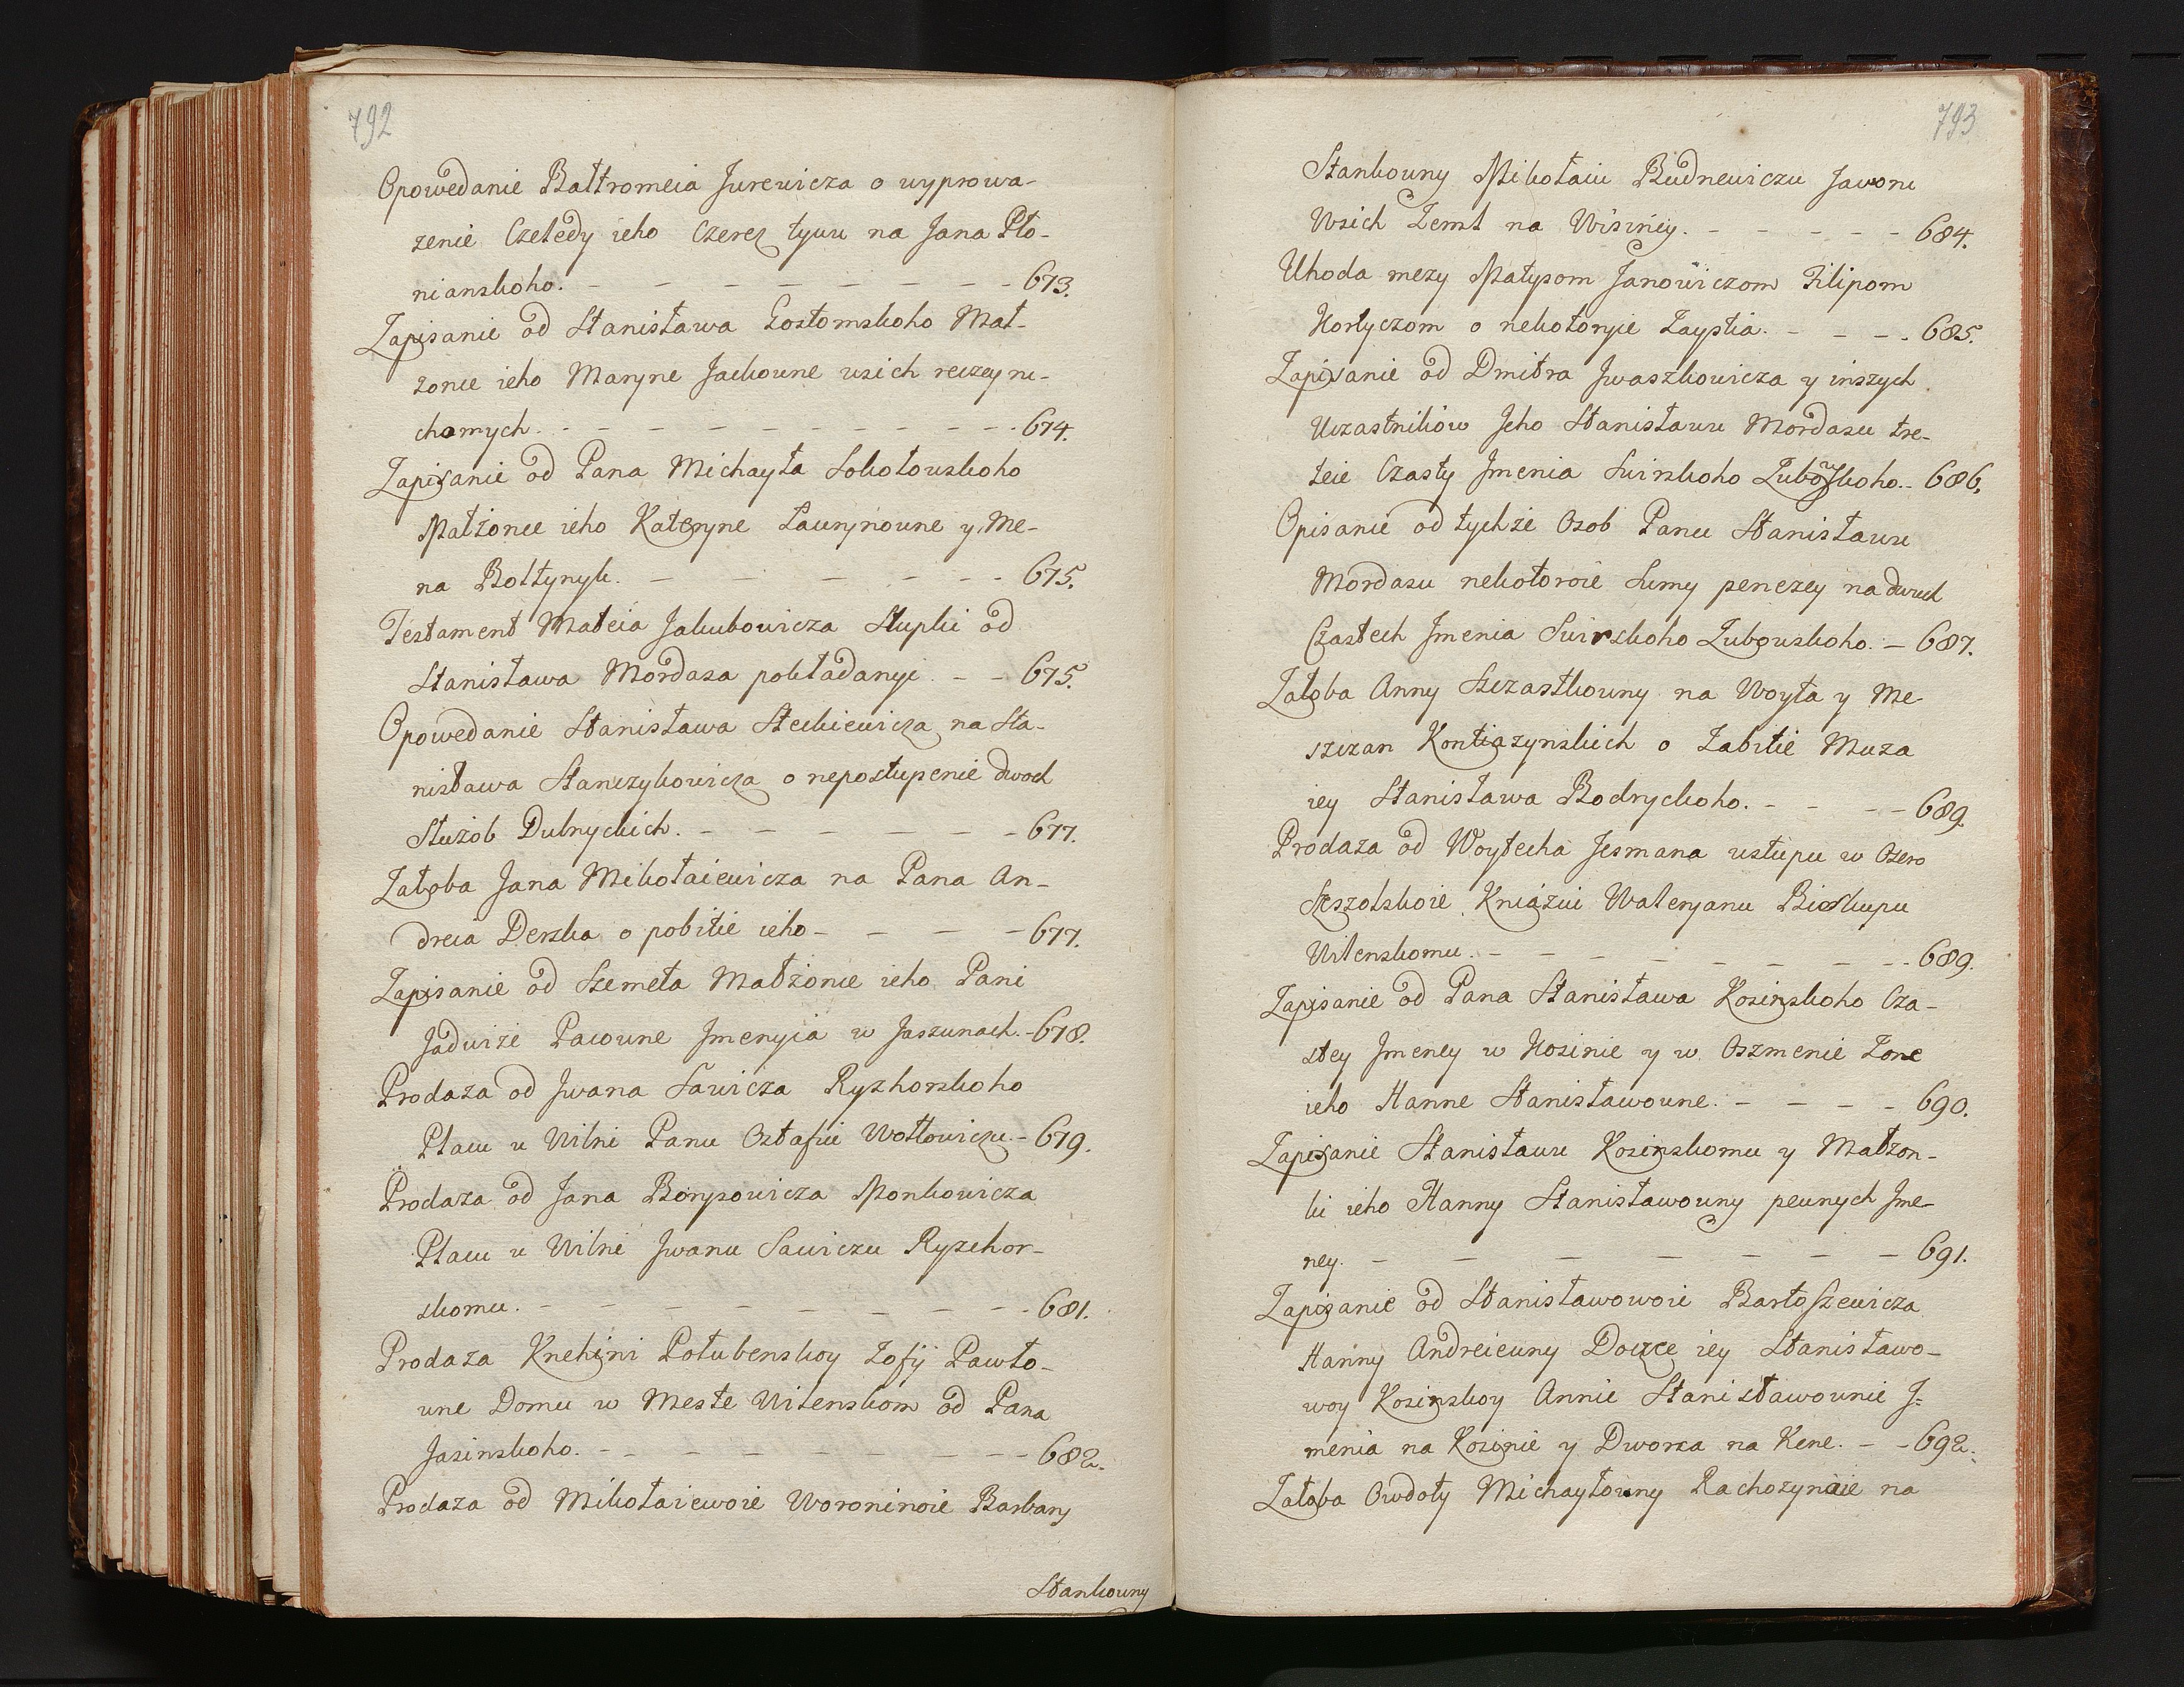 792
Opowedanie Bałtromeia Jurewicza o wyprowa-
zenie Czeledy ieho Czerez tyuu na Jana Pło-
nianskoho. - - - - - - - - 673.
Zapisanie od Stanisława Gostomskoho Mał-
zonce ieho Maryne Jackoune wsich reczey ru-
chomych. - - - - - - - - - 674.
Zapisanie od Pana Michayła Sokołouskoho
Małżonce ieho Kateryne Laurynoune y Me-
na Boltynyk. - - - - - - 675.
Testament Mateia Jakubowicza Słupki od
Stanisława Mordasa pokładanyi. - - 675.
Opowedanie Stanisława Steckiewicza na Sta-
nisława Stanczykowicza o nepostupenie dwoch
Służob Dubnyckich. - - - - - - 677.
Załoba Jana Mikołaiewicza na Pana An-
dreia Derska o pobitie ieho - - - - 677.
Zapisanie od Szemeta Małżonce ieho Pani
Jadwize Pacoune Jmenyia w Jaszunach. - 678.
Prodaza od Jwana Sawicza Ryzhorskoho
Płacu u Wilni Panu Ostafiu Wołłowiczu. - 679.
Prodaza od Jana Borysowicza Monkowicza
Płacu u Wilni Jwanu Sawiczu Ryzehor-
skomu. - - - - - - - - - 681.
Prodaza Knehini Połubenskoy Zofij Pawło-
une Domu w Meste Wilenskom od Pana
Jasinskoho. - - - - - - - - 682.
Prodaza od Mikołaiewoie Woroninoie Barbary
Stankouny
793
Stankouny Mikołaiu Budnewiczu Jaworu
Wsich Zeml na Wisiney. - - - - - 684.
Uhoda mezy Matysom Janowiczom Filipom
Hortyczom o nekotoryie Zaystia. - - - - 685.
Zapisanie od Dmitra Jwaszkowicza y inszych
Uczastnikow Jeho Stanisławu Mordasu tre-
teie Czasty Jmenia Swirskoho Zubowskoho. - 686.
Opisanie od tychże Osob Panu Stanisławu
Mordasu nekotoroie Sumy penezey na dwuch
Czastech Jmenia Swirskoho Zubouskoho. - 687.
Załoba Anny Szczastkouny na Woyta y Me-
szczan Kontiazynskich o Zabitie Muza
iey Stanisława Bodryckoho. - - - - 689.
Prodaza od Woytecha Jesmana ustupu w Ozero
Szeszolskoie Kniaziu Waleryanu Biskupu
Wilenskomu. - - - - - - - - 689.
Zapisanie od Pana Stanisława Kosinskoho Cza-
stey Jmeney w Hosinie y w Oszmenie Zone
ieho Hanne Stanisławoune. - - - - 690.
Zapisanie Stanisławu Kosinskomu y Małzon-
ki ieho Hanny Stanisławouny pewnych Jme-
ney. - - - - - - - 691.
Zapisanie od Stanisławowoie Bartoszewicza
Hanny Andreiewny Docze iey Stanisławo-
woy Kosinskoy Annie Stanisławounie J=
menia na Kosinie y Dworca na Kene. - - 692.
Załoba Owdoty Michayłouny Rachozynoie na